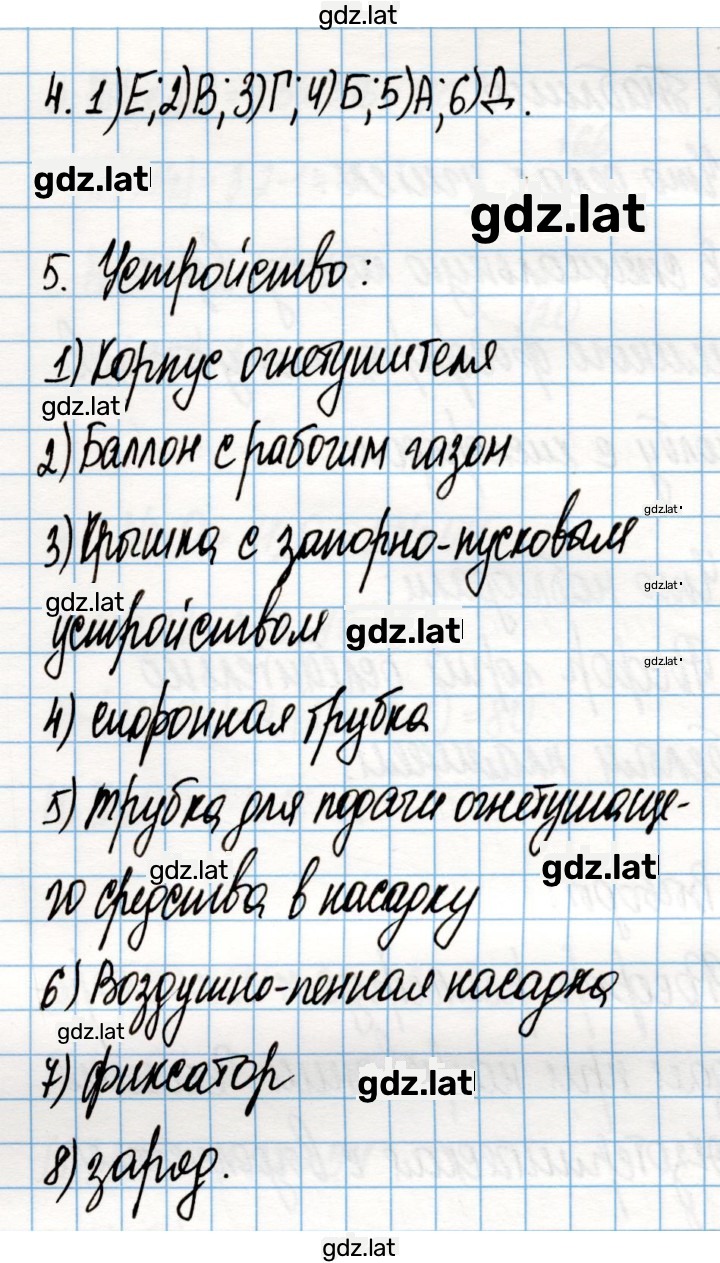 gdz.lat
4. 1)Е; 2)В; 3)Г; 4)Б; 5)А; 6)Д.
gdz.lat
gdz.lat
5. Устройство:
1) Корпус огнетушителя
gdz.lat
2) Баллон с рабочим газон
gdz.lat
3) Крышка с запорно-пусковым
gdz.lat
gdz.lat
устройством gdz.lat
gdz.lat
4) сифонная трубка
5) трубка для подачи огнетушаще-
gdz.lat
gdz.lat
го средства в насадку
6) Воздушно-пенная насадка
gdz.lat
7) фиксатор
gdz.lat
8) заряд.
gdz.lat